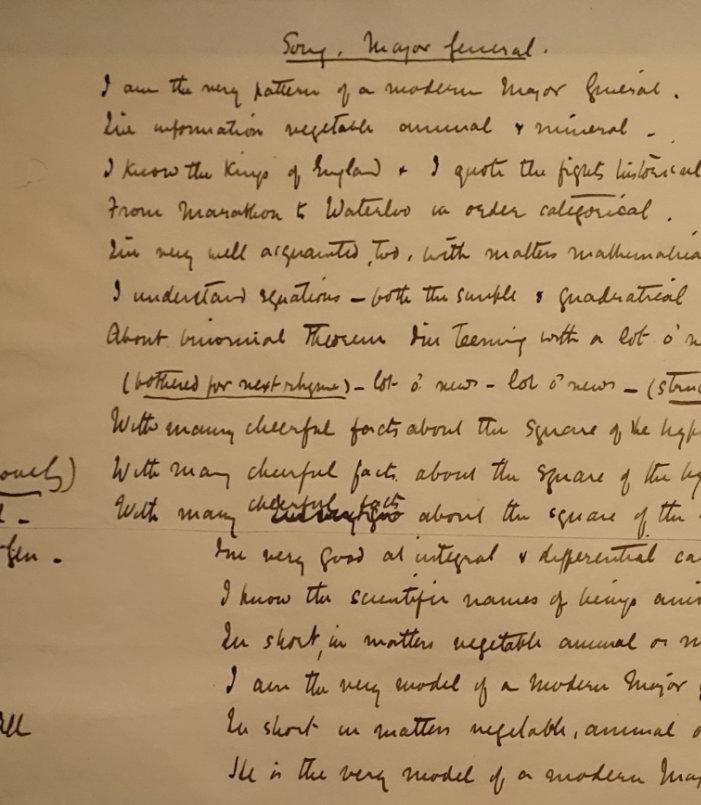 Song. Major General.
I am the very pattern of a modern Major General.
I've information vegetable animal & mineral -
I know the Kings of England & I quote the fights historical
From Marathon to Waterloo in order categorical.
I'm very well acquainted, too, with matters mathematica
I understand equations - both the simple & quadratical
About binomial Theorem I'm teeming with a lot o' n
(bothered for next rhyme) - lot o' news - lot o' news - (struc
With many cheerful facts about the square of the hyp
ously) With many cheerful facts about the square of the hy
With many cheerful facts about the square of the
Gen. - I'm very good at integral & differential ca
I know the scientific names of beings ani
In short, in matters vegetable animal or m
I am the very model of a modern Major
All In short in matters vegetable, animal o
He is the very model of a modern Maj